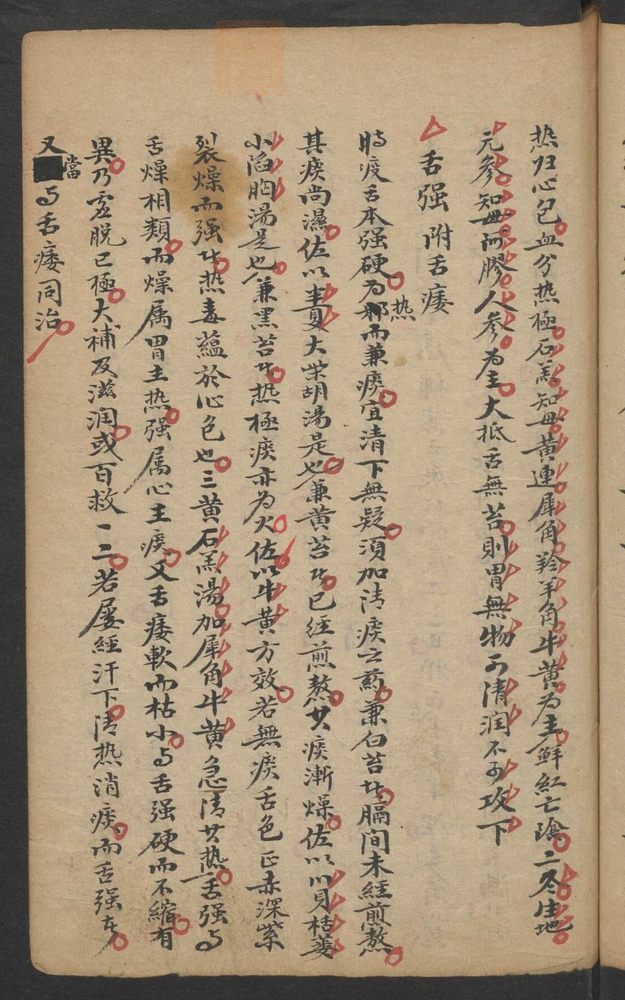 热归心包血分热極石羔知母黄連犀角羚羊角牛黄為主鮮紅亡陰二冬生地
元参知母阿膠人参為主大抵舌無苔則胃無物可清潤不可攻下
舌强 附舌痿
時疫舌本强硬为热邪而兼痰宜清下無疑須加清痰之薬兼白苔者膈間未経煎熬
其痰尚濕佐以半夏大柴胡湯是也兼黄苔者已経煎熬其痰漸燥佐以川貝栝蔞
小陷胸湯是也兼黑苔者热極痰亦为火佐以牛黄方效若無痰舌色正赤深紫
裂燥而强者热毒蘊於心包也三黄石羔湯加犀角牛黄急清其热舌强与
舌燥相類而燥属胃主热强属心主痰又舌痿軟而枯小与舌强硬而不縮有
異乃虚脱已極大補及滋潤或百救一二若屢経汗下清热消痰而舌强者
又當与舌痿同治